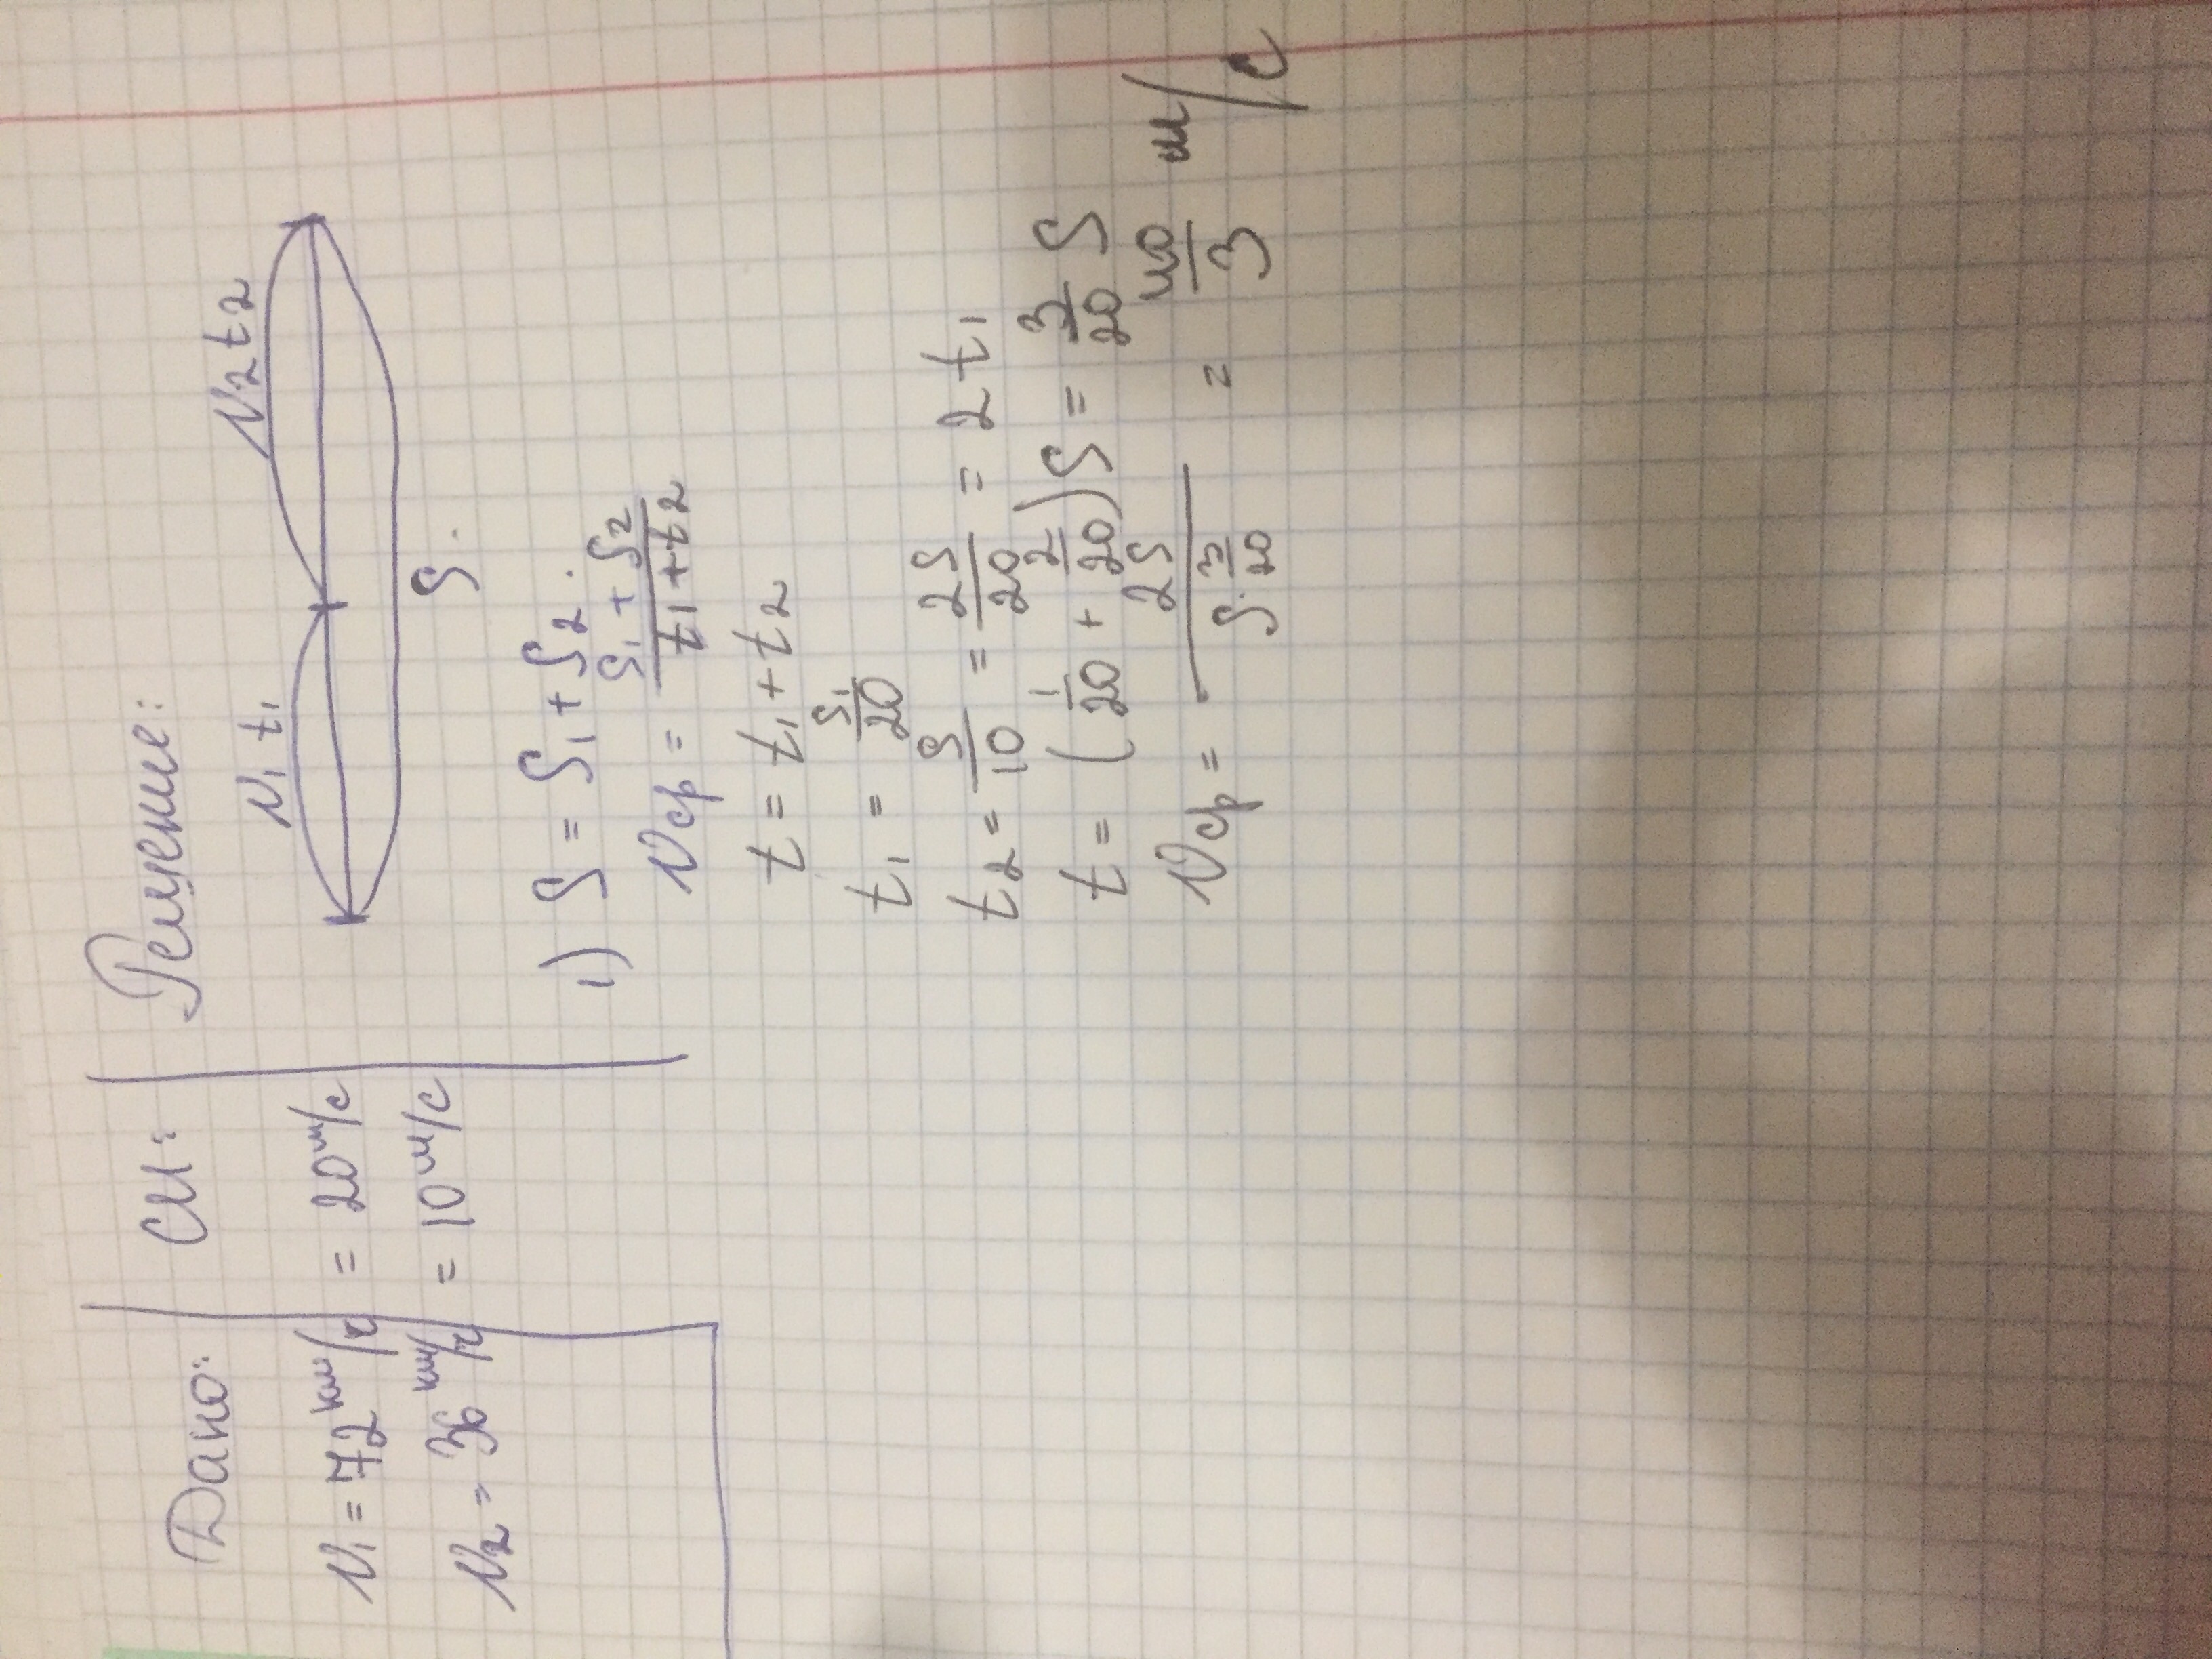 Дано:
v₁ = 72 км/ч
v₂ = 36 км/ч
СИ:
= 20 м/с
= 10 м/с
Решение:
v₁t₁ v₂t₂
S.
1) S = S₁ + S₂.
vср = (S₁ + S₂)/(t₁ + t₂)
t = t₁ + t₂
t₁ = S₁/20
t₂ = S/10 = 2S/20 = 2t₁
t = (1/20 + 2/20)S = 3/20 S
vср = 2S/(S·3/20) = 40/3 м/с